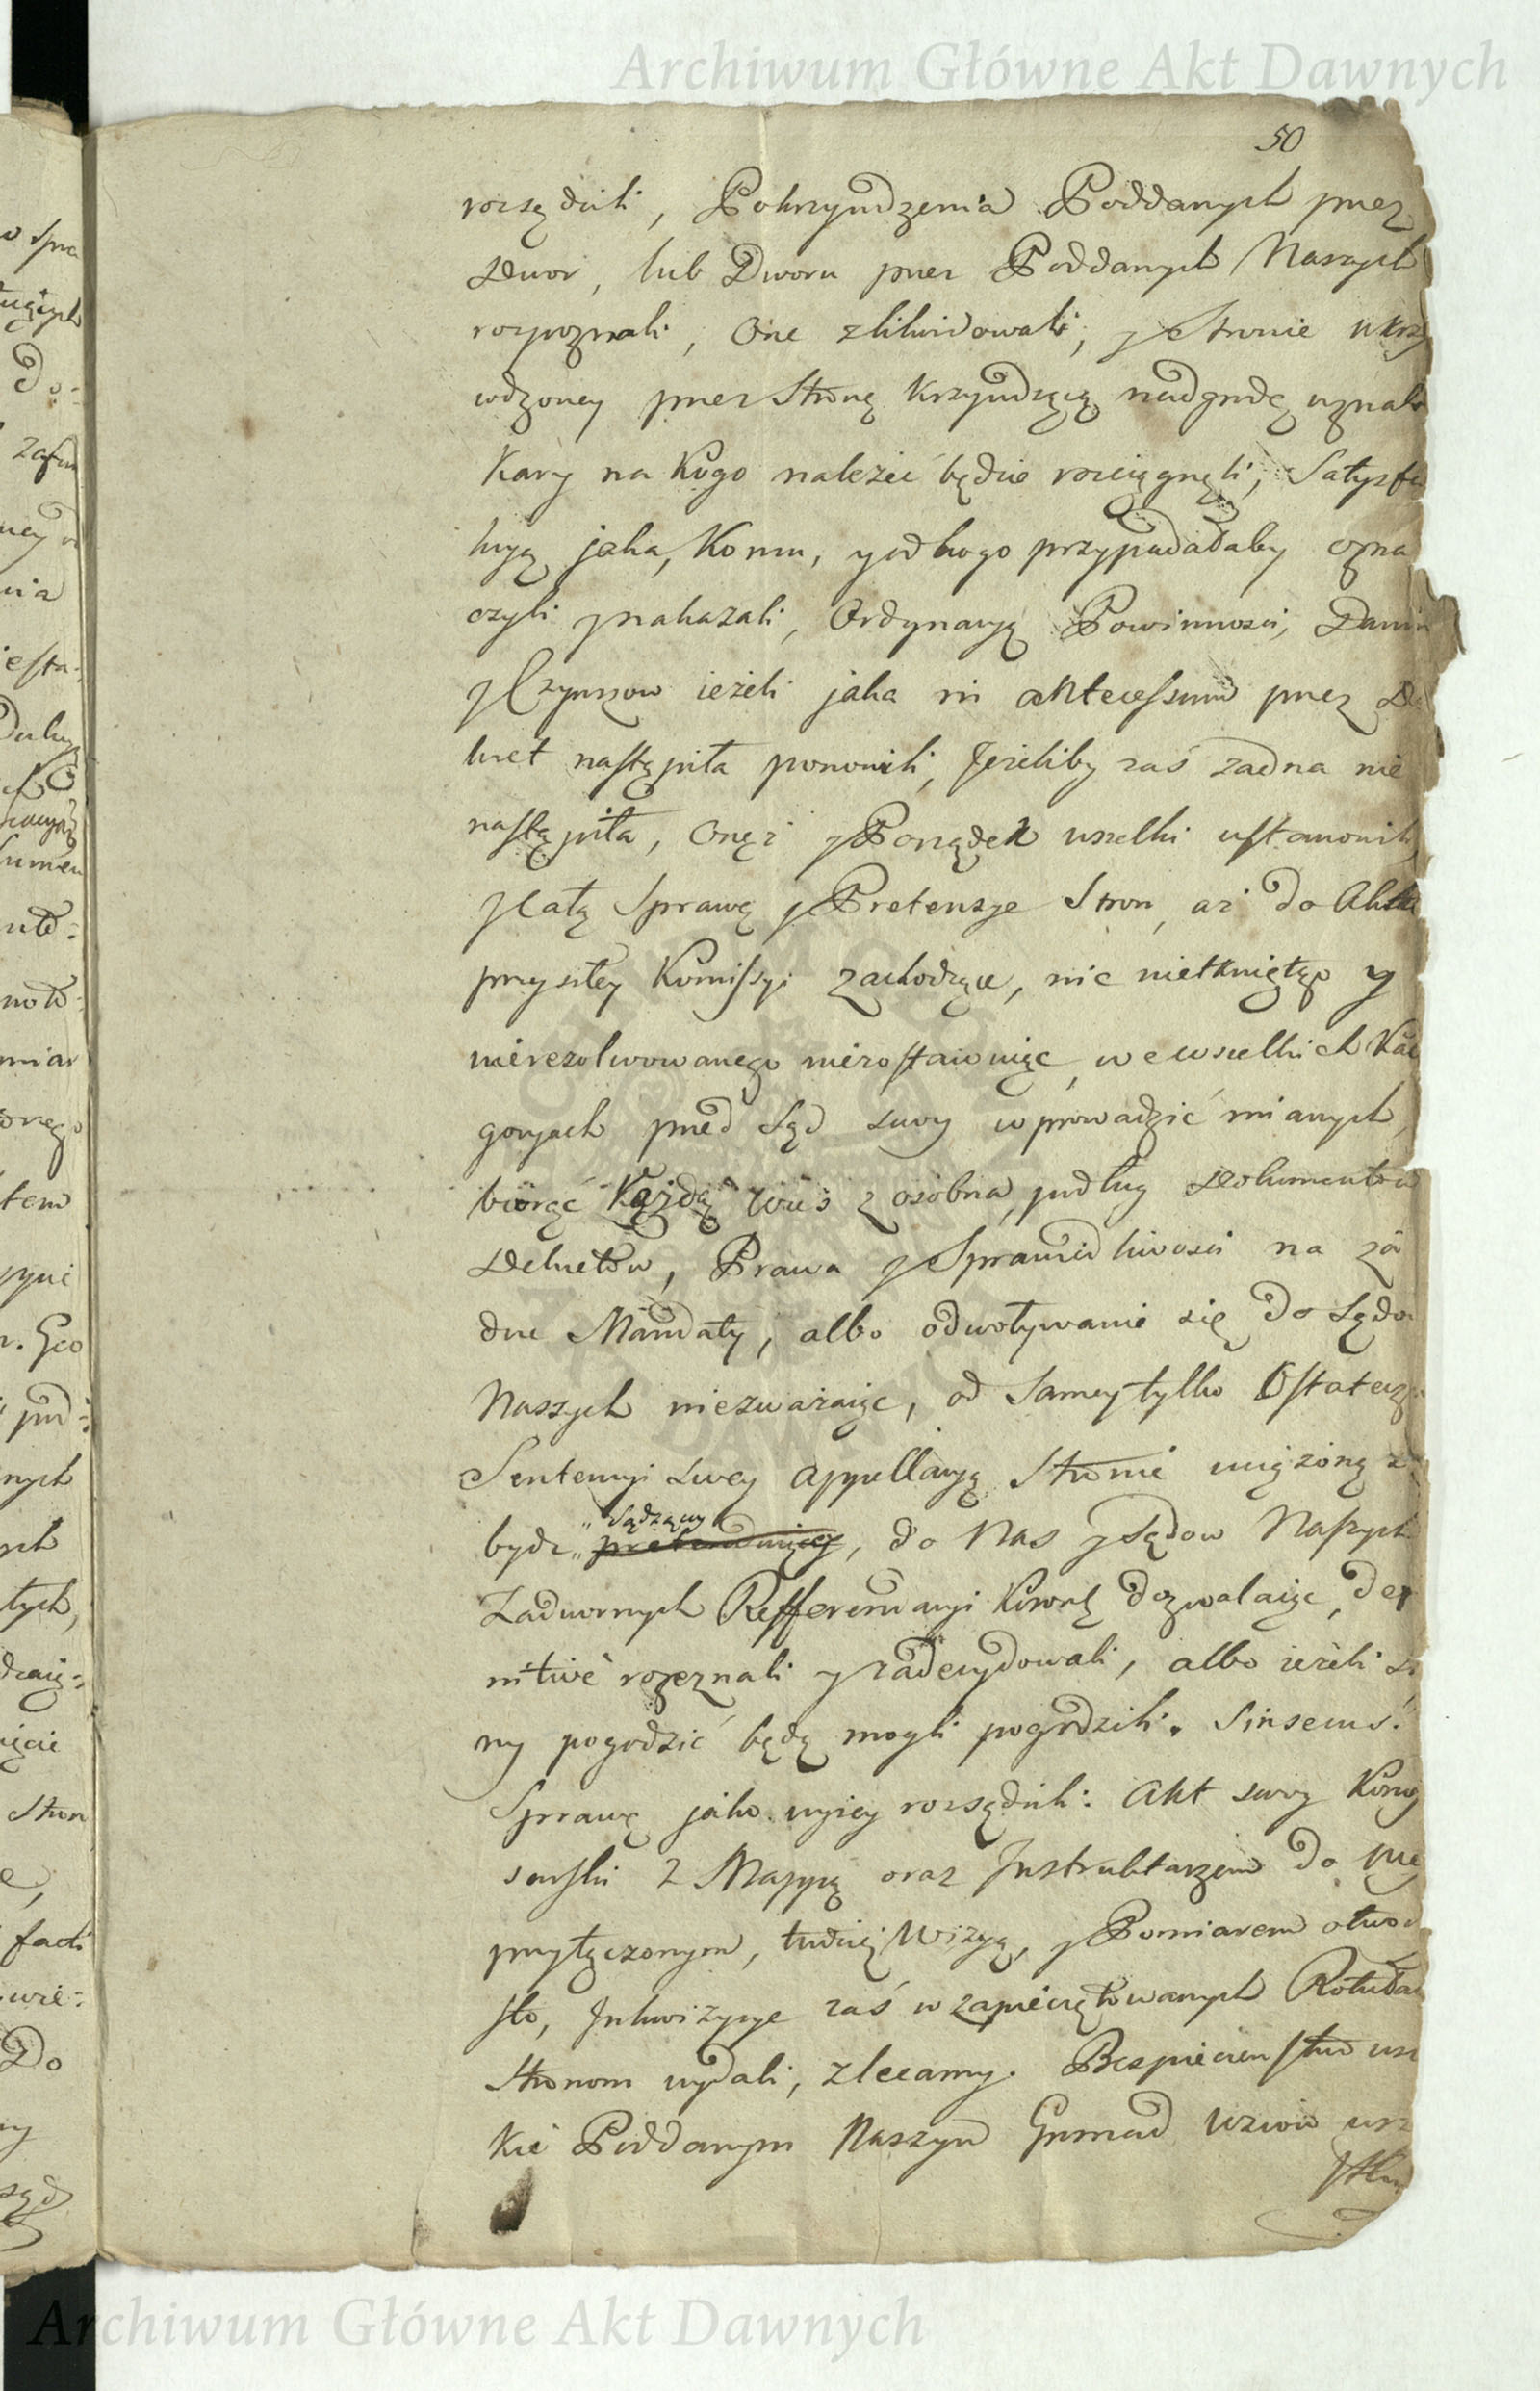 Archiwum Główne Akt Dawnych
50
rozsędzili, Pokrzywdzenia Poddanych przez
Dwor, lub Dworu przez Poddanych Naszych
rozpoznali, One zlikwidowali, y Stronie ukrzy
wdzoney przez Stronę Krzywdzącą nadgrodę uznali
Kary na Kogo nalezeć będzie rościągnęli, Satysfa
kcyą jaka, Komu, y od kogo przypadałaby ozna
czyli y nakazali, Ordynacyą Powinnosci, Danin
y Czynszow ieżeli jaka in antecessum przez De
kret nastąpiła ponowili, Jeżeliby zaś żadna nie
nastąpiła, Onęż y Porządek wszelki ustanowili,
y Całą Sprawę y Pretensye Stron, aż do Aktu
przyszłey Komissyi zachodzące, nic nietkniętego y
nierezolwowanego niezostawuiąc, we wszelkich Kate
goryach przed Sąd swoy wprowadzić mianych,
biorąc Każdą Wieś z osobna, podług Dokumentow
Dekretow, Prawa y Sprawiedliwosci na ża
dne Mandaty, albo odwoływanie się do Sądow
Naszych niezważaiąc, od Samey tylko Ostateczn
Sentencyi swey Appellacyą Stronie uciążoną
bydz „Sądzącey
pretenduiącey, do Nas y Sądow Naszych
Zadwornych Refferendaryi Koronę dozwalaiąc, defi
nitive rozeznali y zadecydowali, albo ieżeli St
ny pogodzić będą mogli pogodzili. Sinsecus.
Sprawę jako wyzey rozsędzili: Akt swoy Komis
sarski z Mappą oraz Jnstruktarzem do niey
przyłączonym, tudzież Wizyą, y Pomiarem otwar
sto, Jnkwizycye zaś w zapieczętowanych Rotułach
Stronom wydali, zlecamy. Bespieczenstwo wsz
kie Poddanym Naszym Gromad Wzwiż wsz
Archiwum Główne Akt Dawnych